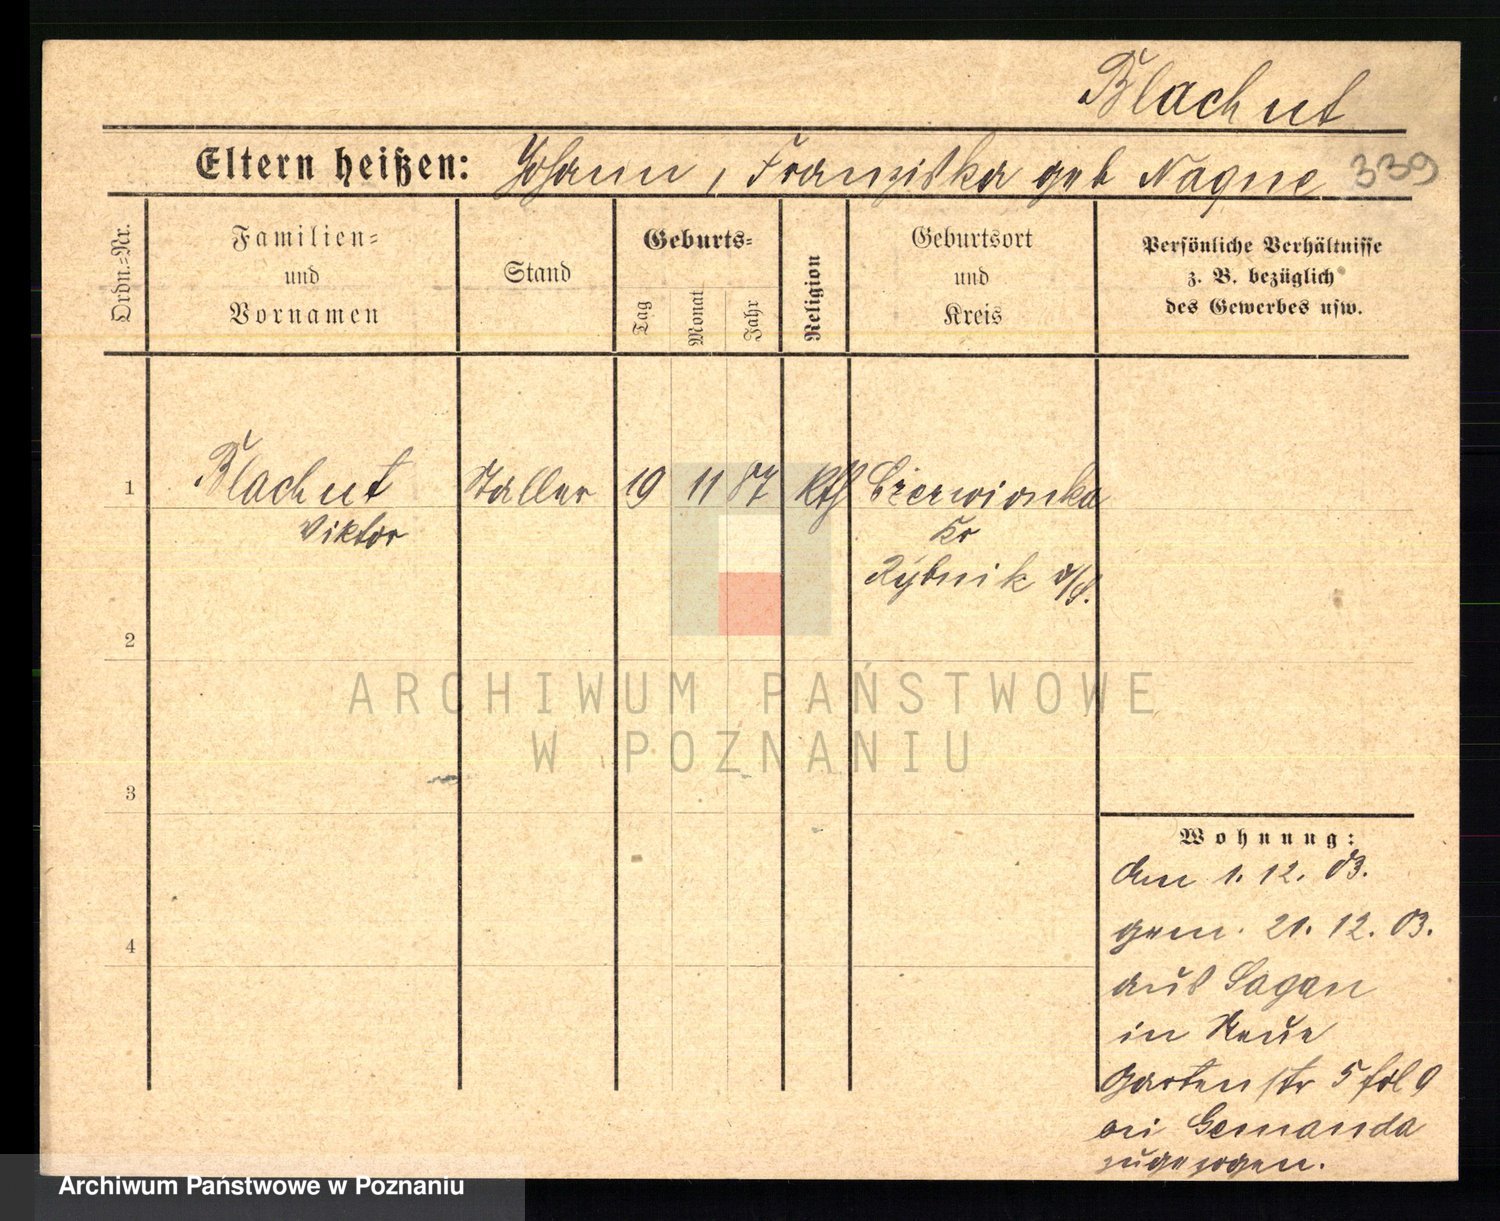 Blachut
Eltern heißen: Johann, Franziska geb Nagne 339
Ordn.-Nr.
Familien-
und
Vornamen
Stand
Geburts-
Tag
Monat
Jahr
Religion
Geburtsort
und
Kreis
Persönliche Verhältnisse
z. B. bezüglich
des Gewerbes usw.
1 Blachut 19 11 87 kth Czerwionka
Viktor Kr
Rybnik O/S.
2
3
4
Wohnung:
Am 1. 12. 03.
gem. 21. 12. 03.
aus Sagan
in Neue
Gartenstr 5
bei
zugezogen.
ARCHIWUM PAŃSTWOWE
W POZNANIU
Archiwum Państwowe w Poznaniu